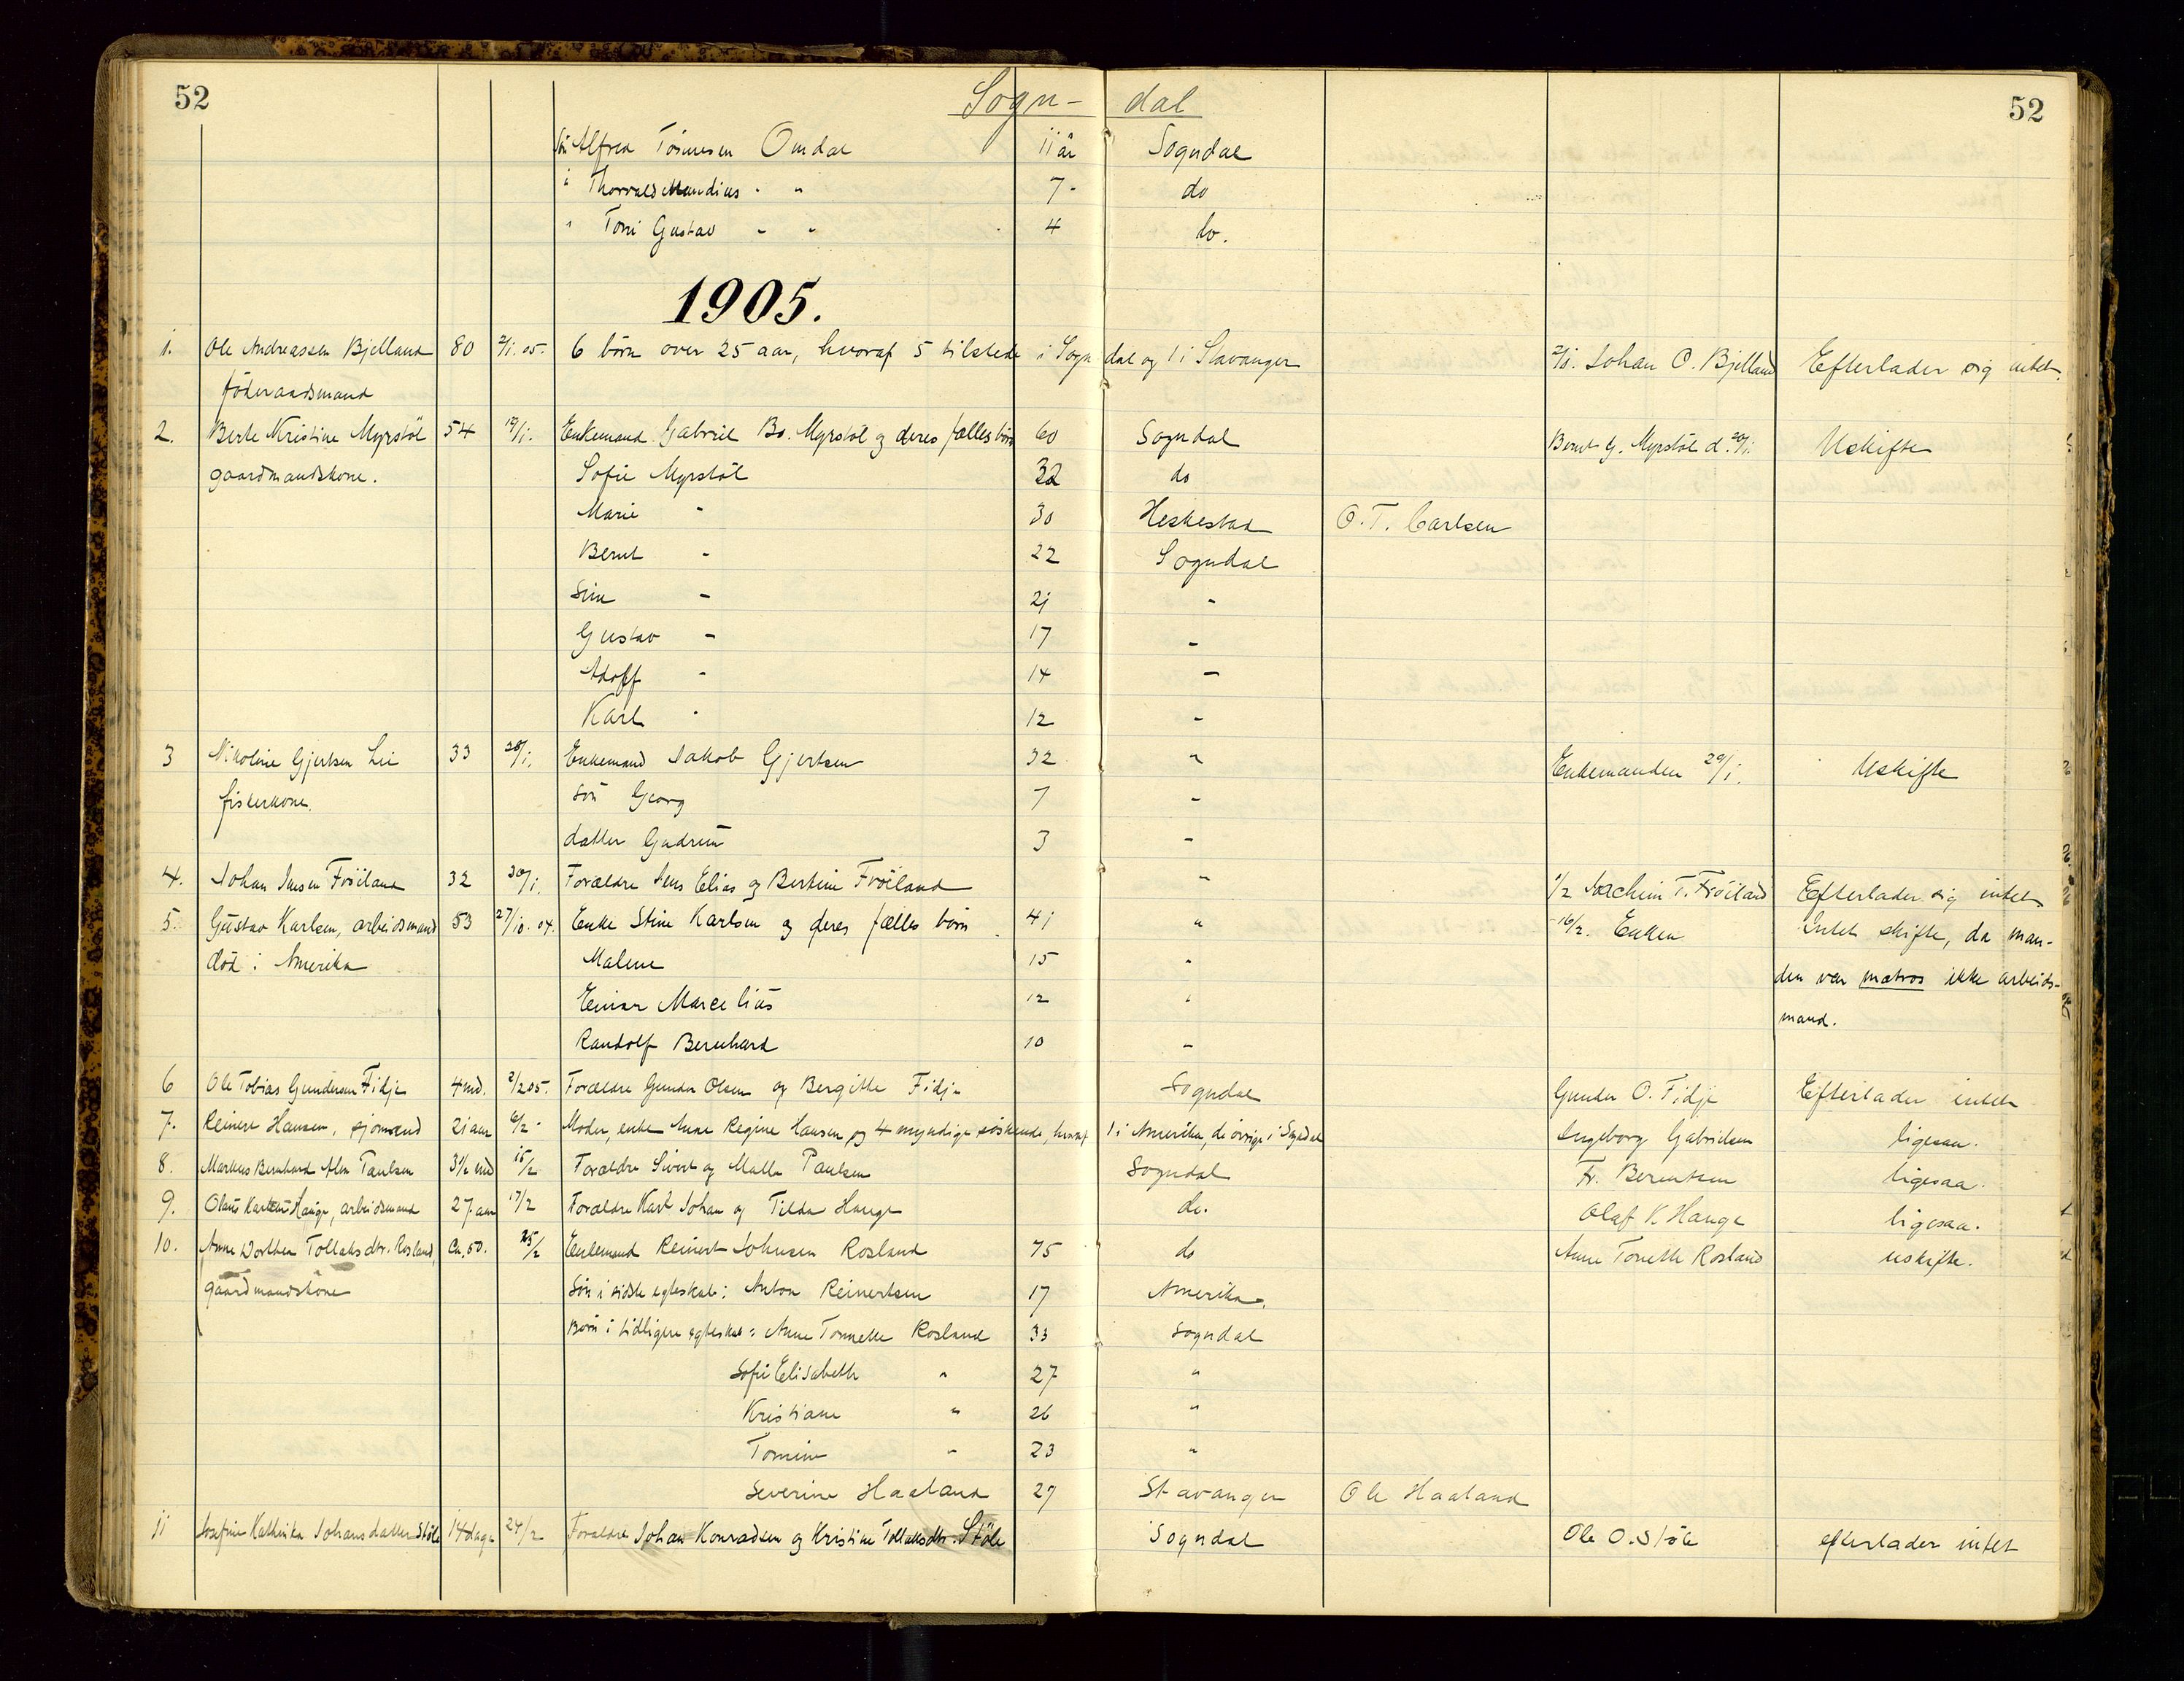 52 Sogn- dal 52
Søn Alfred Tønnesen Omdal 11 år Sogndal
" Thorvald Mandius " " 7 - do
" Toni Gustav " " 4 do.
1905.
1. Ole Andreassen Bjelland 80 2/1.05. 6 børn over 25 aar, hvoraf 5 tilstede i Sogndal og 1 i Stavanger 2/1. Johan O. Bjelland Efterlader sig intet.
föderaadsmand
2. Berte Kristine Myrstöl 54 19/1. Enkemand Gabriel Bo. Myrstöl og deres fælles børn 60 Sogndal Bernt G. Myrstöl d. 20/1. Uskifte
gaardmandskone. Sofie Myrstöl 32 do
Marie " 30 Heskestad O. T. Carlsen
Bernt " 22 Sogndal
Sine " 21 "
Gustav " 17 "
Adolf " 14 "
Karl " 12 "
3 Nikoline Gjertsen Lie 33 28/1. Enkemand Jakob Gjertsen 32 " Enkemanden 29/1. Uskifte
fiskerkone. søn Georg 7 "
datter Gudrun 3 "
4. Johan Jensen Fröiland 32 30/1. Forældre Jens Elias og Bertine Fröiland " 1/2 Joachim T. Fröiland Efterlader sig intet
5. Gustav Karlsen, arbeidsmand 53 27/10.04. Enke Stine Karlsen og deres fælles børn 41 " 16/2. Enken Intet skifte, da man-
död i Amerika Malene 15 " den var matros ikke arbeids-
Einar Marcelius 12 " mand.
Randolf Bernhard 10 "
6 Ole Tobias Gundersen Fidje 4 md. 2/2 05. Forældre Gunder Olsen og Bergitte Fidje Sogndal Gunder O. Fidje Efterlader intet
7. Reinert Hansen, sjömand 21 aar 6/2 " Moder, enke Anne Regine Hansen og 4 myndige söskende, hvoraf 1 i Amerika, de övrige i Sogndal Ingeborg Gabrielsen ligesaa.
8. Markus Bernhard Paulsen 3 1/2 md 15/2 Forældre Sivert og Malle Paulsen Sogndal Fr. Berentsen ligesaa.
9. Olaus Hauge, arbeidsmand 27 aar 17/2 Forældre Karl Johan og Tilda Hauge do. Olaf K. Hauge ligesaa.
10. Anne Dorthea Tollaksdtr. Rosland, Ca. 60. 25/2 Enkemand Reinert Johnsen Rosland 75 do Anne Tonette Rosland uskifte.
gaardmandskone Søn i sidste egteskab: Anton Reinertsen 17 Amerika.
Børn i tidligere egteskab: Anne Tonnette Rosland 33 Sogndal
Sofie Elisabeth " 27 "
Kristiane " 26 "
Tomine " 23 "
Severine Haaland 27 Stavanger Ole Haaland
11 Josefine Kathinka Johansdatter Stöle 14 dage 24/2 Forældre Johan Konradsen og Kristine Tollaksdtr. Stöle Sogndal Ole O. Stöle efterlader intet